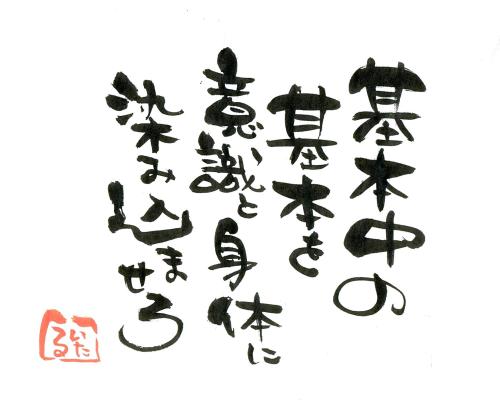 基本中の
基本を
意識と身体に
染み込ませろ
いたる